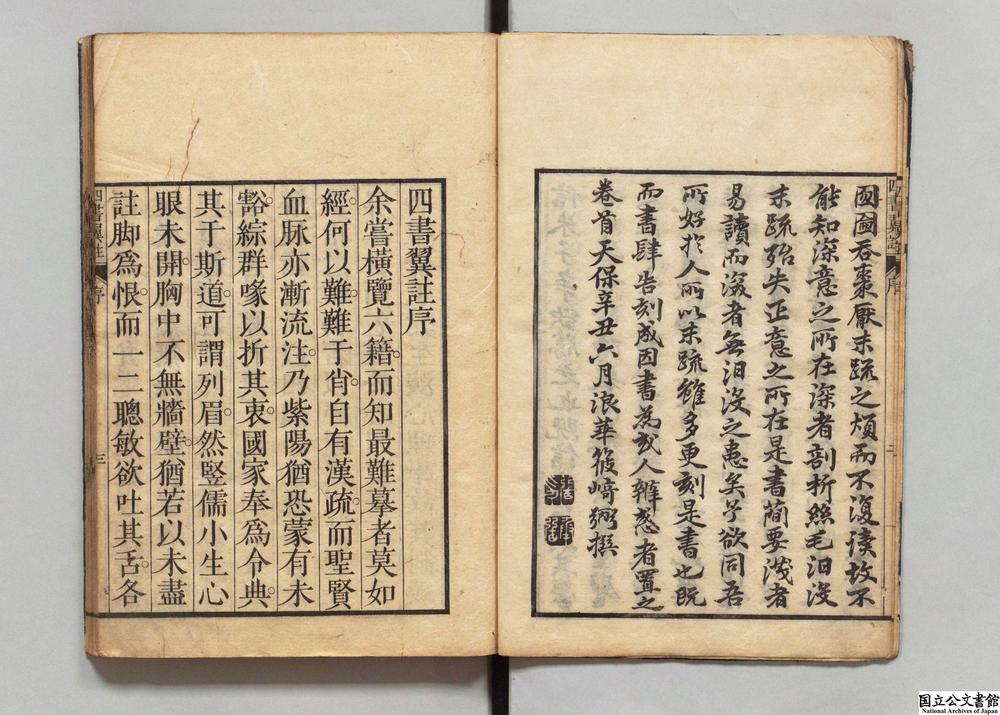 國圇吞棗厭末疏之煩而不復讀故不
能知深意之所在深者剖析絲毛汩沒
末疏殆失正意之所在是書簡要淺者
易讀而深者無汩沒之患矣予欲同吾
所好於人所以末疏雖多更刻是書也既
而書肆告刻成因書為或人辨惑者置之
卷首天保辛丑六月浪華篠崎弼撰
四書翼註 序 二
四書翼註序
余嘗橫覽六籍。而知最難摹者莫如
經。何以難。難于肖。自有漢疏。而聖賢
血脉亦漸流注。乃紫陽猶恐蒙有未
豁。綜群喙以折其衷。國家奉爲令典。
其于斯道。可謂列眉。然竪儒小生。心
眼未開。胸中不無牆壁。猶若以未盡
註脚爲恨。而一二聰敏欲吐其舌。各
四書翼註 序 三
国立公文書館
National Archives of Japan